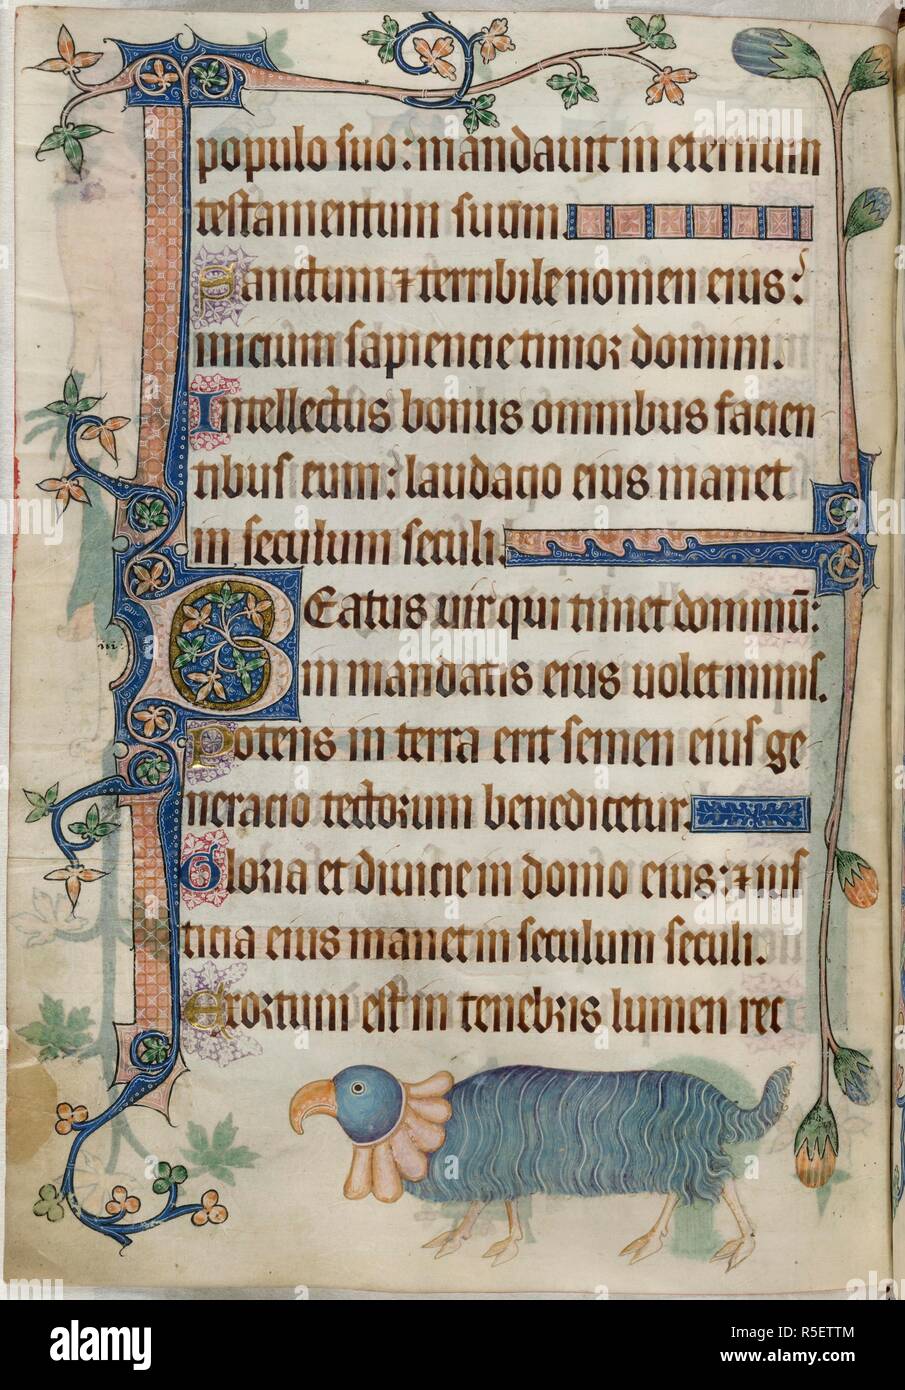 populo suo: mandavit in eternum
testamentum suum
Sanctum ⁊ terribile nomen eius:
inicium sapiencie timor domini.
Intellectus bonus omnibus facien
tibus eum: laudacio eius manet
in seculum seculi.
Beatus vir qui timet dominū:
in mandatis eius volet nimis.
Potens in terra erit semen eius ge
neracio rectorum benedicetur.
Gloria et divicie in domo eius: ⁊ ius
ticia eius manet in seculum seculi.
Exortum est in tenebris lumen rec
alamy
Image ID: R5ETTM
www.alamy.com